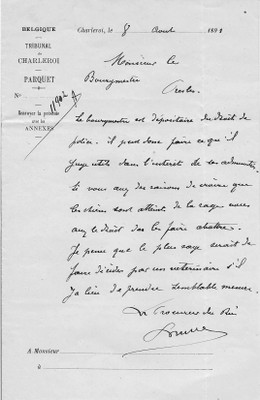 BELGIQUE
TRIBUNAL
DE
CHARLEROI
PARQUET
N° 11902
Renvoyer la présente
avec les
ANNEXES
Charleroi, le 8 Août 1891
Monsieur le
Bourgmestre
Le bourgmestre est dépositaire du droit de
police. il peut donc faire ce qu'il
juge utile dans l'intérêt de ses administrés
Si vous avez des raisons de croire que
les chiens sont atteints de la rage vous
avez le droit de les faire abattre.
Je pense que le plus sage serait de
faire décider par un vétérinaire s'il
y a lieu de prendre semblable mesure.
Le Procureur du Roi
A Monsieur
à